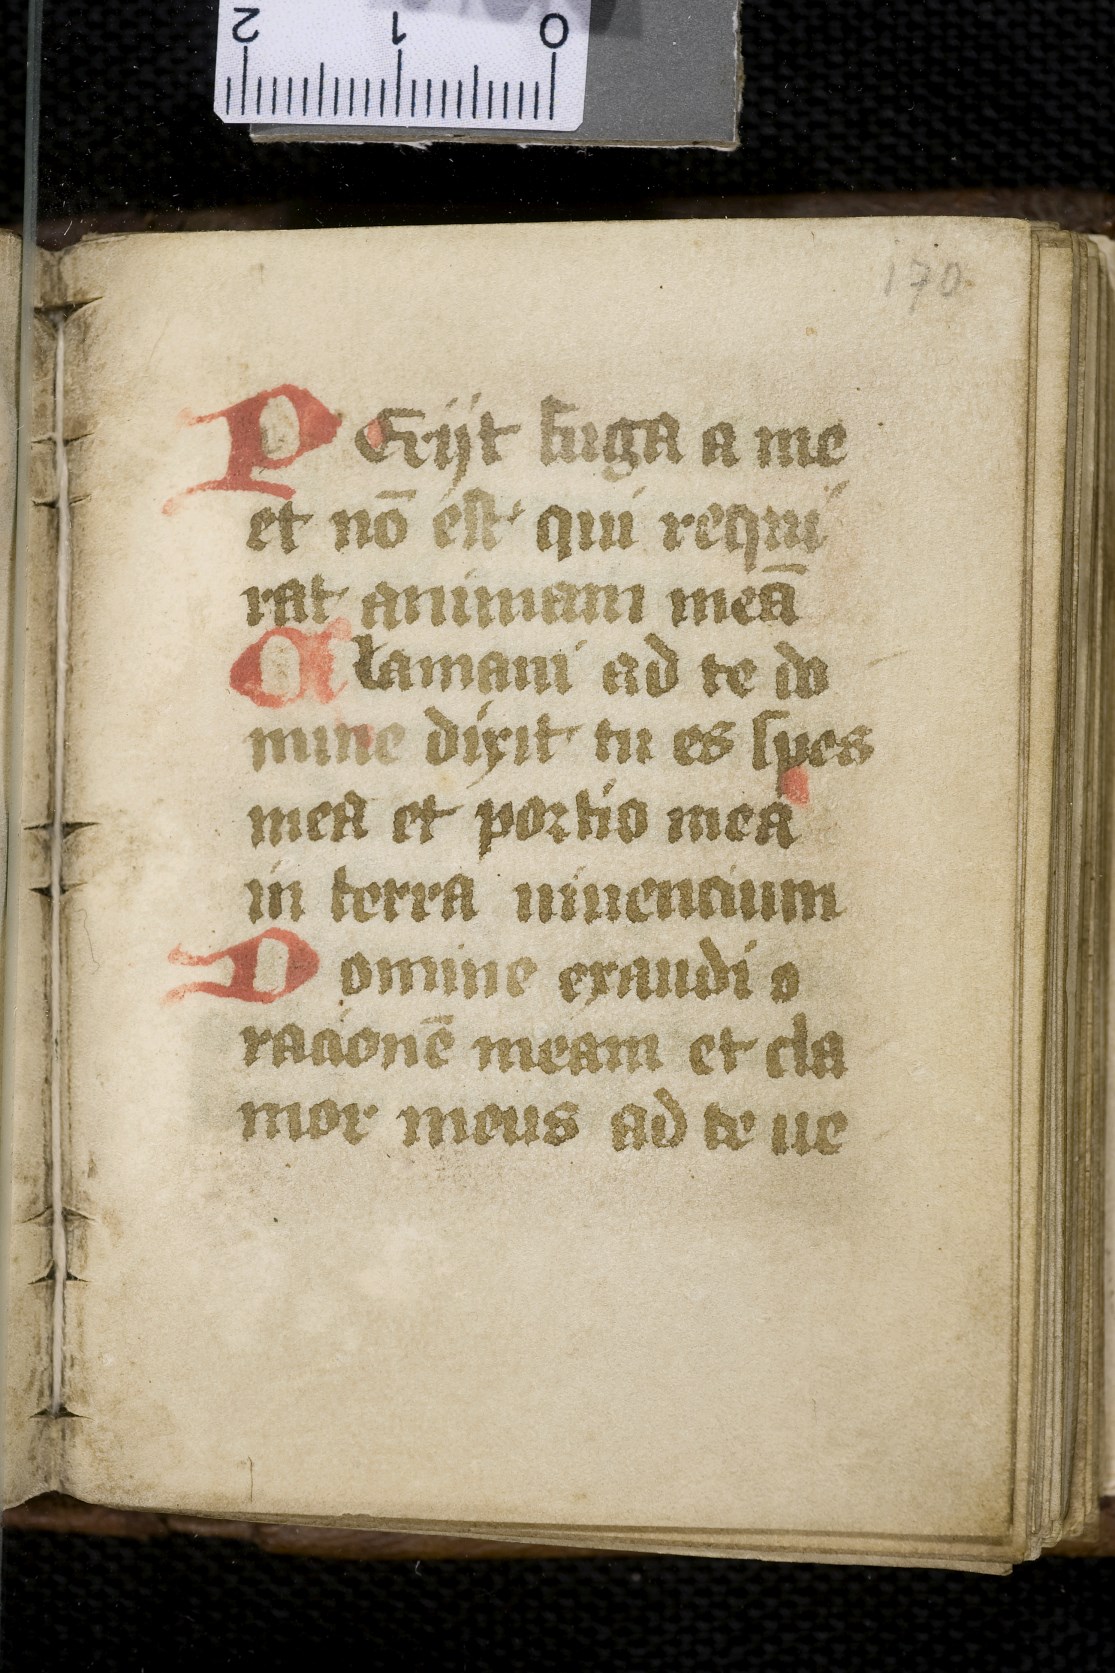 2 1 0
170
PErijt fuga a me
et nō est qui requi
rat animam meā
Clamaui ad te do
mine dixit tu es spes
mea et portio mea
in terra uiuencium
Domine exaudi o
racionē meam et cla
mor meus ad te ue